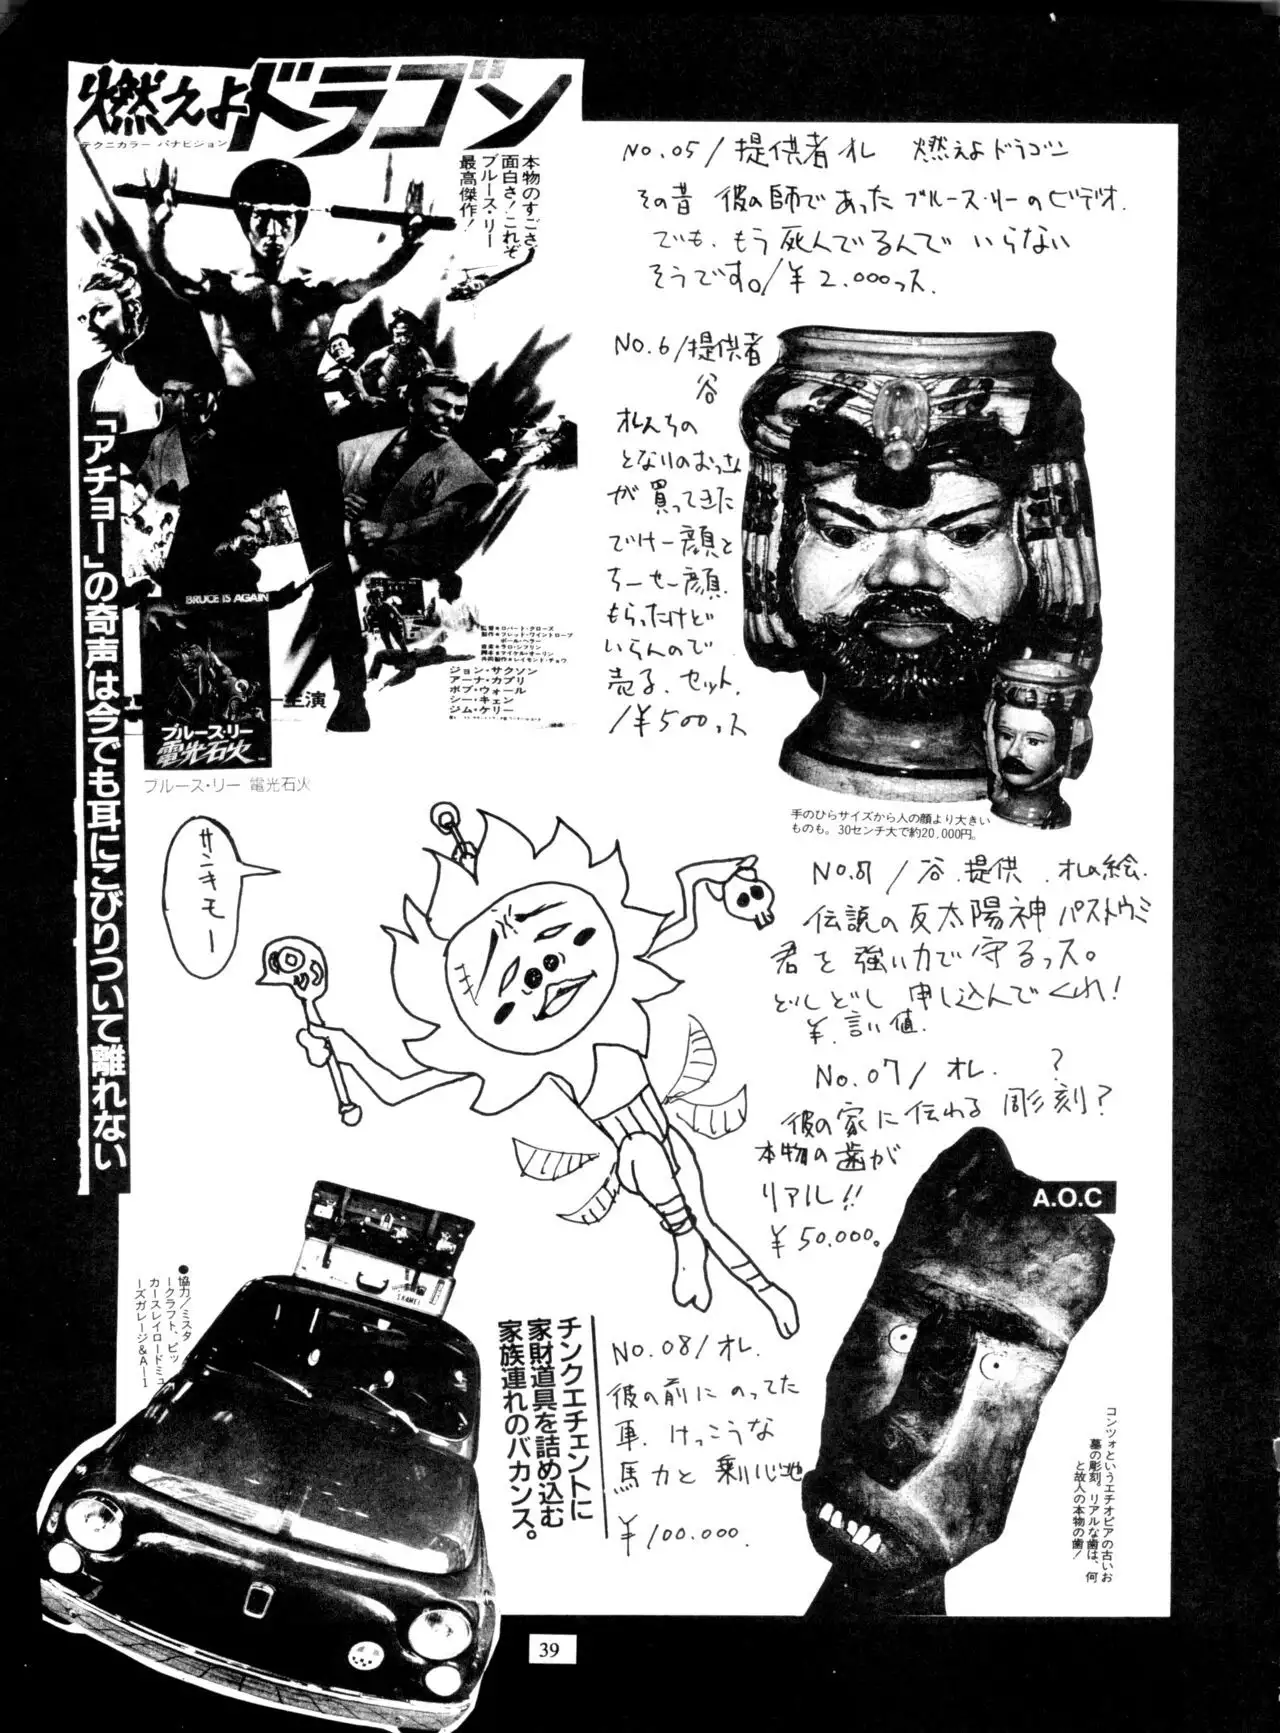 燃えよドラゴン
テクニカラー パナビジョン
本物のすごさ、
面白さ!これぞ
ブルース・リー
最高傑作!
「アチョー」の奇声は今でも耳にこびりついて離れない
BRUCE IS AGAIN
ブルース・リー
電光石火
ー主演
監督●ロバート・クローズ
製作●フレッド・ワイントローブ
ポール・ヘラー
音楽●ラロ・シフリン
脚本●マイケル・オーリン
共同製作●レイモンド・チョウ
ジョン・サクソン
アーナ・カプリ
ボブ・ウォール
シー・キェン
ジム・ケリー
ブルース・リー 電光石火
No.05/提供者オレ 燃えよドラゴン
その昔 彼の師であったブルース・リーのビデオ.
でも、もう死んでるんで いらない
そうです。/¥2.000っス.
No.6/提供者
谷
オレんちの
となりのおっさん
が買ってきた
でけー顔と
ちーせー顔.
もらったけど
いらんので
売る. セット.
/¥500っス
手のひらサイズから人の顔より大きい
ものも。30センチ大で約20,000円。
サンキモー
No.87/谷.提供.オレの絵.
伝説の反太陽神パストウミ
君を強い力で守るっス。
どしどし申し込んでくれ!
¥.言い値.
No.07/オレ. ?
彼の家に伝わる彫刻?
本物の歯が
リアル!!
¥50.000。
A.O.C
コンツォというエチオピアの古いお
墓の彫刻。リアルな歯は、何
と故人の本物の歯!
●協力/ミスタ
ークラフト、ビッ
カースレイロードミュ
ーズガレージ&A-1
チンクエチェントに
家財道具を詰め込む
家族連れのバカンス。
No.08/オレ.
彼の前にのってた
車.けっこうな
馬力と乗り心地
¥100.000.
39